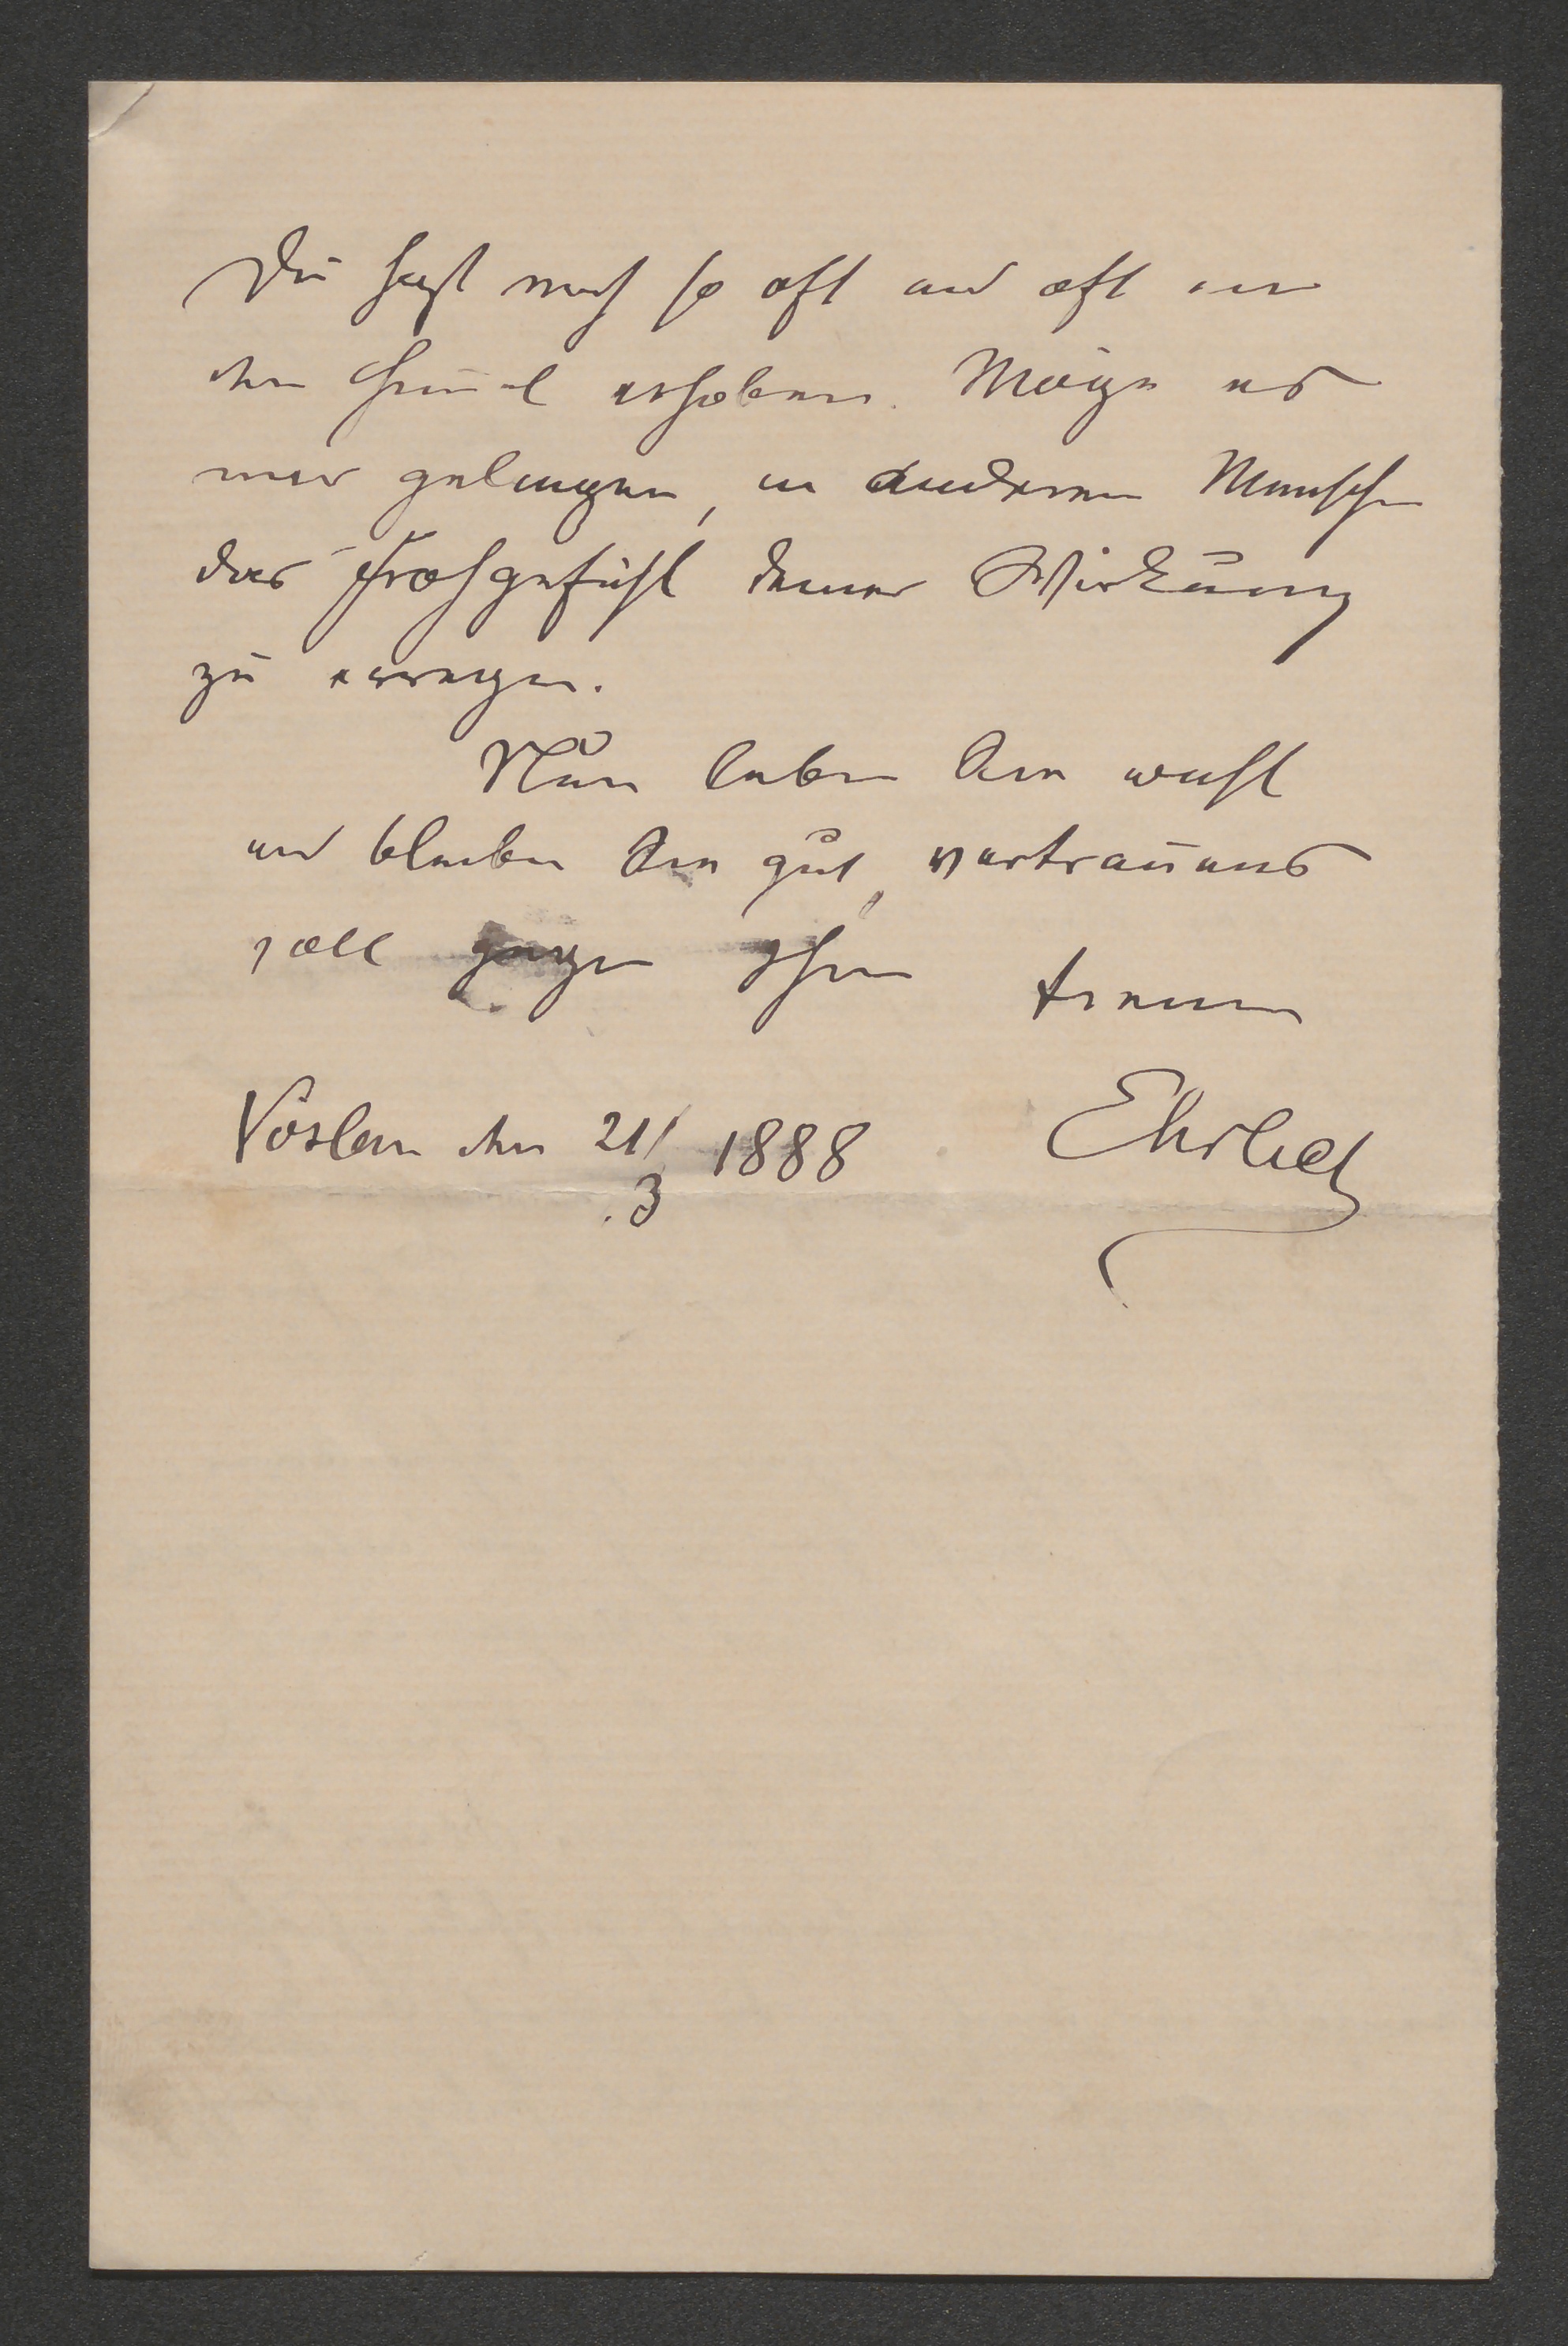 Du hast mich so oft und oft in
den Himmel erhoben. Möge es
mir gelingen, in anderen Menschen
das Frohgefühl deiner Wirkung
zu erregen.
Nun leben Sie wohl
und bleiben Sie gut, vertrauens
voll gegen Ihren treuen
Vöslau den 21/3 1888 Ehrlich